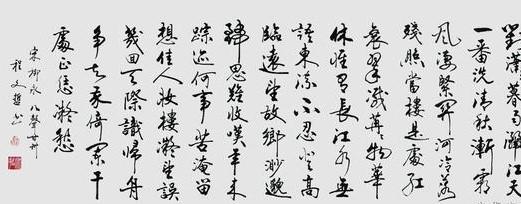 對瀟暮雨灑江天
一番洗清秋漸霜
風淒緊關河冷落
殘照當樓是處紅
衰翠減苒物華
休惟有長江水無
語東流不忍登高
臨遠望故鄉渺邈
歸思難收嘆年來
踪迹何事苦淹留
想佳人妝樓凝望誤
幾回天際識歸舟
爭知我倚闌干
處正恁凝愁
宋柳永八聲甘州
程文哲書